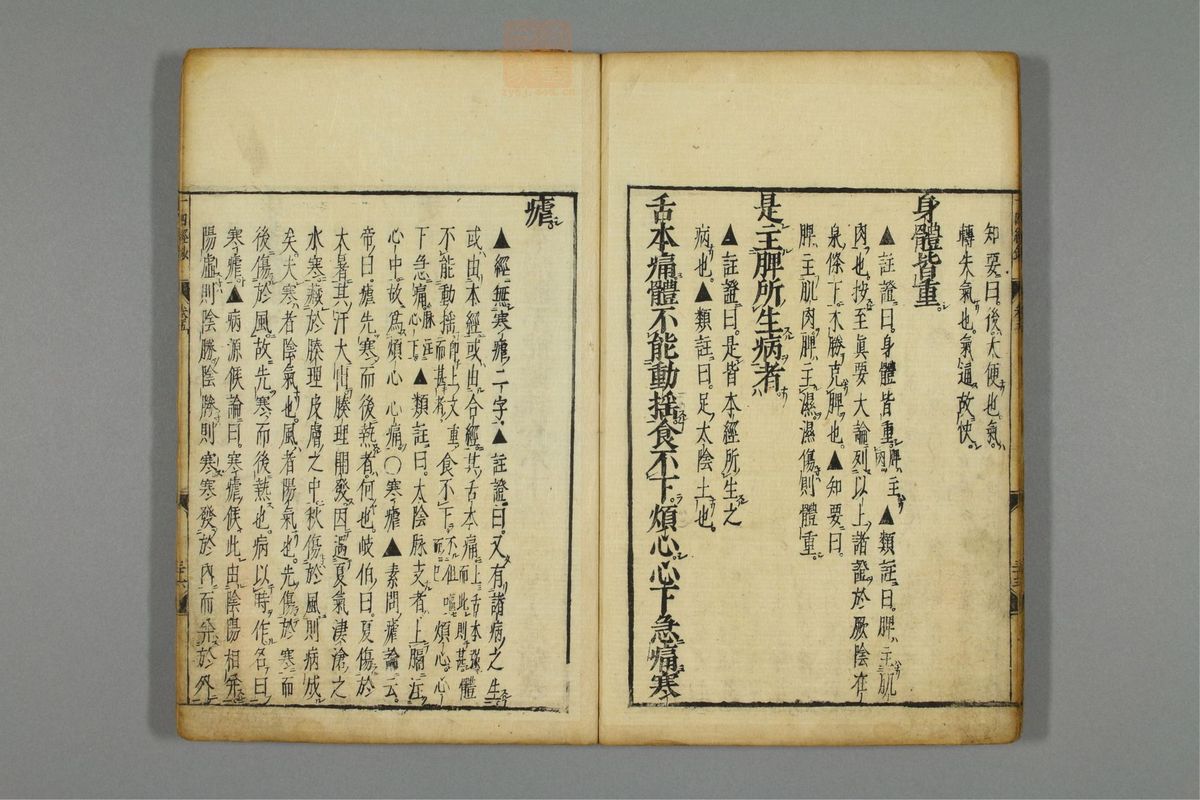 知要曰。後大便也。氣
轉失氣也。氣逼故快。
身體皆重。
▲註證曰。身體皆重。脾主肉▲類註曰。脾主肌
肉也。按至眞要大論列以上諸證於厥陰在
泉條下。木勝克脾也。▲知要曰。
脾主肌肉。脾主濕。濕傷則體重。
是主脾所生病者。
▲註證曰。是皆本經所生之
病也。▲類註曰。足太陰土也。
舌本痛體不能動搖食不下。煩心心下急痛寒
瘧。
▲經無寒瘧二字。▲註證曰。又有諸病之生。
或由本經或由合經。其舌本痛。上舌本強而此則甚體
不能動搖。即上文重而甚者食不下。不但嘔而已煩心。心
下急痛。脉註心下。▲類註曰。太陰脉支者上膈注
心中。故爲煩心心痛。○寒瘧▲素問瘧論云。
帝曰瘧先寒而後熱者何也。岐伯曰。夏傷於
大暑其汗大出腠理開發因遇夏氣淒滄之
水寒藏於腠理皮膚之中秋傷於風則病成
矣。夫寒者陰氣也。風者陽氣也。先傷於寒而
後傷於風。故先寒而後熱也。病以時作名曰
寒瘧。▲病源候論曰。寒瘧候此由陰陽相并
陽虛則陰勝陰勝則寒。寒發於內而并於外